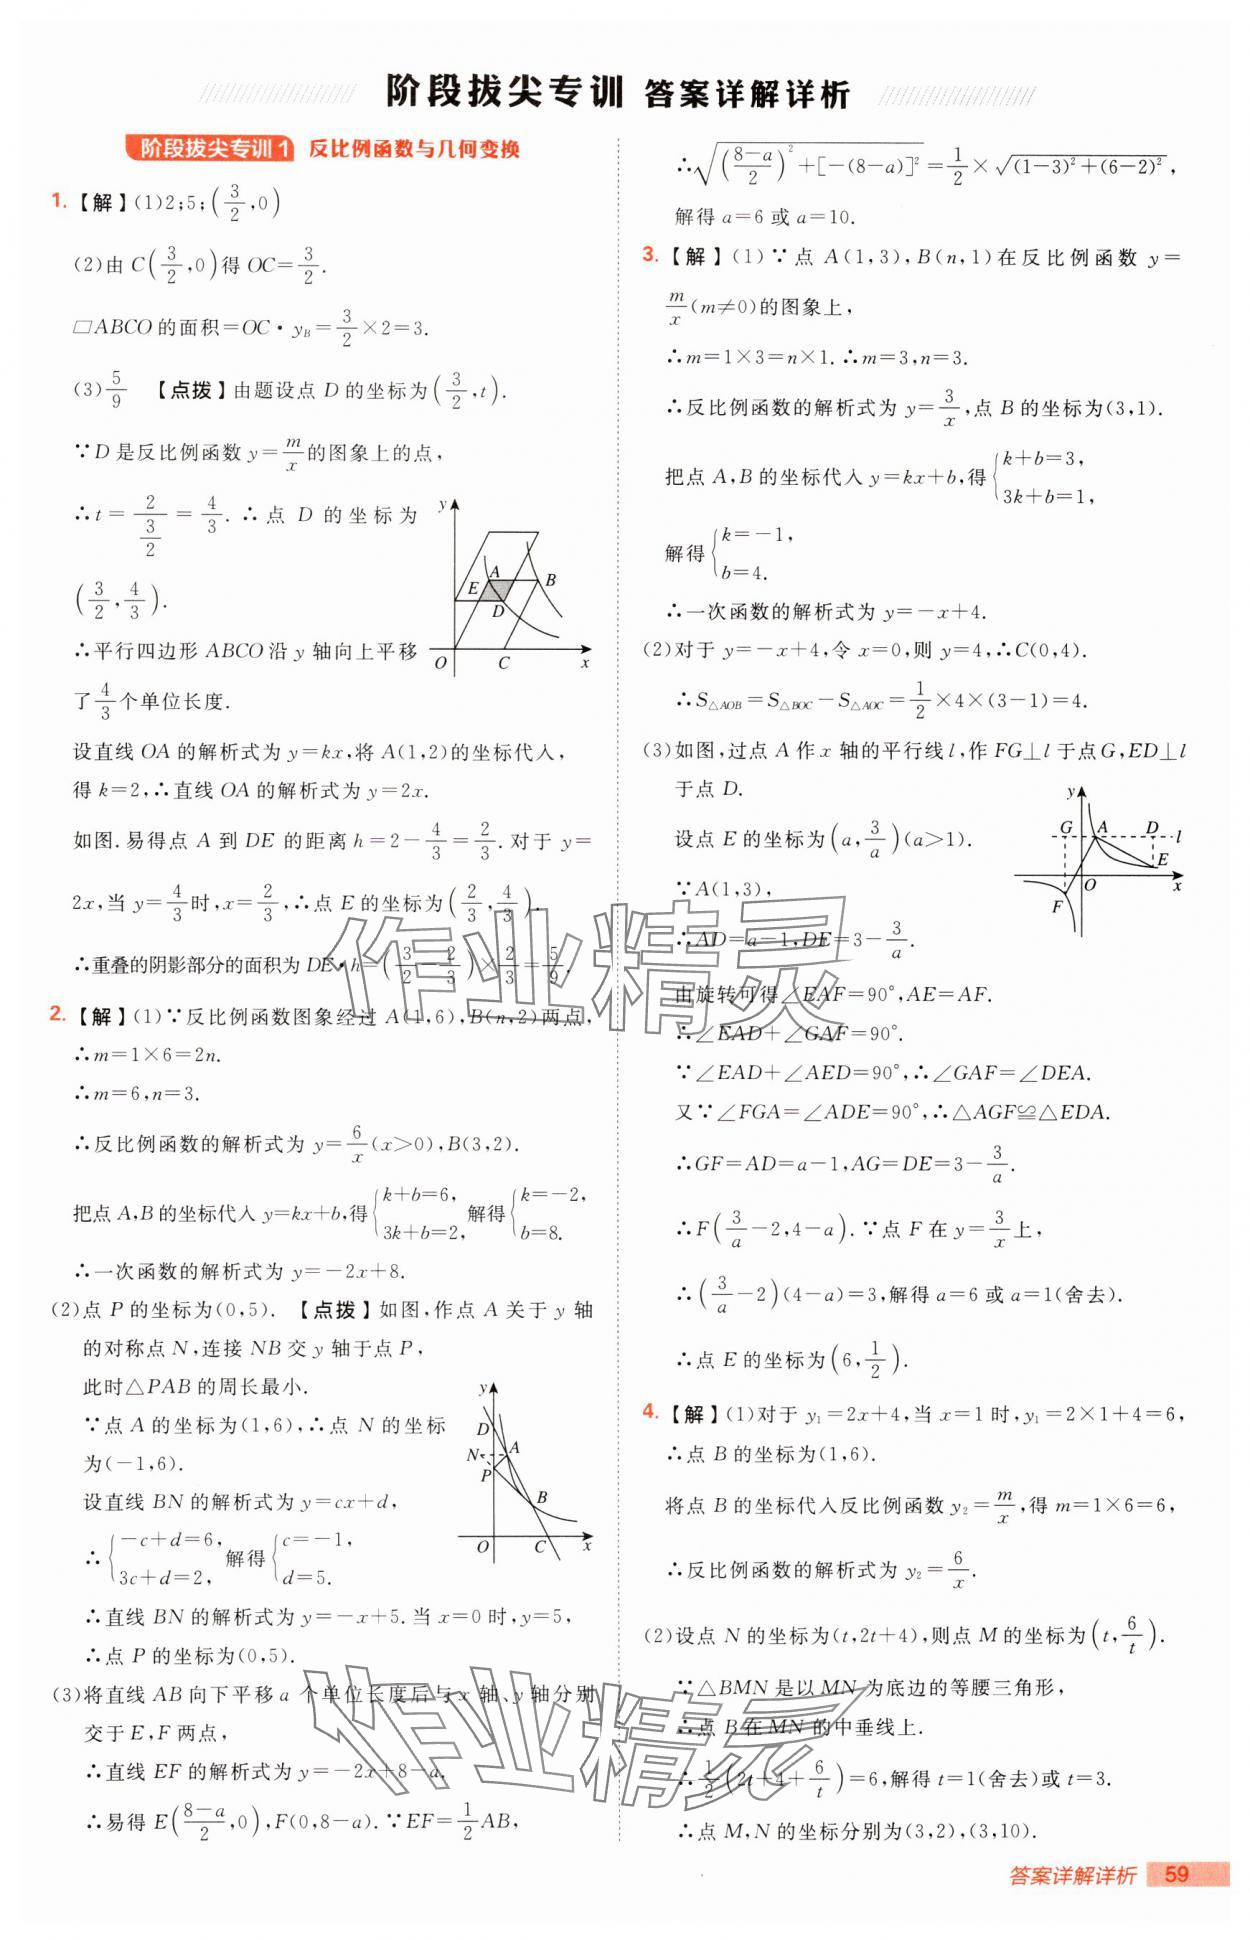 阶段拔尖专训 答案详解详析
阶段拔尖专训1 反比例函数与几何变换
1.【解】(1)2;5;(3/2,0)
(2)由C(3/2,0)得OC=3/2.
□ABCO的面积=OC·y_B=3/2×2=3.
(3)5/9 【点拨】由题设点D的坐标为(3/2,t).
∵D是反比例函数y=m/x的图象上的点,
∴t=2/(3/2)=4/3.∴点D的坐标为
(3/2,4/3).
∴平行四边形ABCO沿y轴向上平移
了4/3个单位长度.
y
A
B
E
D
O
C
x
设直线OA的解析式为y=kx,将A(1,2)的坐标代入,
得k=2,∴直线OA的解析式为y=2x.
如图.易得点A到DE的距离h=2-4/3=2/3.对于y=
2x,当y=4/3时,x=2/3,∴点E的坐标为(2/3,4/3).
∴重叠的阴影部分的面积为DE·h=(3/2-2/3)×2/3=5/9.
2.【解】(1)∵反比例函数图象经过A(1,6),B(n,2)两点,
∴m=1×6=2n.
∴m=6,n=3.
∴反比例函数的解析式为y=6/x(x>0),B(3,2).
把点A,B的坐标代入y=kx+b,得{k+b=6,3k+b=2,解得{k=-2,b=8.
∴一次函数的解析式为y=-2x+8.
(2)点P的坐标为(0,5). 【点拨】如图,作点A关于y轴
的对称点N,连接NB交y轴于点P,
此时△PAB的周长最小.
∵点A的坐标为(1,6),∴点N的坐标
为(-1,6).
设直线BN的解析式为y=cx+d,
∴{-c+d=6,3c+d=2,解得{c=-1,d=5.
y
D
N
A
P
B
O
C
x
∴直线BN的解析式为y=-x+5.当x=0时,y=5,
∴点P的坐标为(0,5).
(3)将直线AB向下平移a个单位长度后与x轴、y轴分别
交于E,F两点,
∴直线EF的解析式为y=-2x+8-a.
∴易得E((8-a)/2,0),F(0,8-a).∵EF=1/2AB,
∴√(((8-a)/2)²+[-(8-a)]²)=1/2×√((1-3)²+(6-2)²),
解得a=6或a=10.
3.【解】(1)∵点A(1,3),B(n,1)在反比例函数y=
m/x(m≠0)的图象上,
∴m=1×3=n×1.∴m=3,n=3.
∴反比例函数的解析式为y=3/x,点B的坐标为(3,1).
把点A,B的坐标代入y=kx+b,得{k+b=3,3k+b=1,
解得{k=-1,b=4.
∴一次函数的解析式为y=-x+4.
(2)对于y=-x+4,令x=0,则y=4,∴C(0,4).
∴S△AOB=S△BOC-S△AOC=1/2×4×(3-1)=4.
(3)如图,过点A作x轴的平行线l,作FG⊥l于点G,ED⊥l
于点D.
设点E的坐标为(a,3/a)(a>1).
∵A(1,3),
∴AD=a-1,DE=3-3/a.
y
G
A
D
l
E
O
x
F
由旋转可得∠EAF=90°,AE=AF.
∴∠EAD+∠GAF=90°.
∵∠EAD+∠AED=90°,∴∠GAF=∠DEA.
又∵∠FGA=∠ADE=90°,∴△AGF≌△EDA.
∴GF=AD=a-1,AG=DE=3-3/a.
∴F(3/a-2,4-a).∵点F在y=3/x上,
∴(3/a-2)(4-a)=3,解得a=6或a=1(舍去).
∴点E的坐标为(6,1/2).
4.【解】(1)对于y₁=2x+4,当x=1时,y₁=2×1+4=6,
∴点B的坐标为(1,6).
将点B的坐标代入反比例函数y₂=m/x,得m=1×6=6,
∴反比例函数的解析式为y₂=6/x.
(2)设点N的坐标为(t,2t+4),则点M的坐标为(t,6/t).
∵△BMN是以MN为底边的等腰三角形,
∴点B在MN的中垂线上.
∴1/2(2t+4+6/t)=6,解得t=1(舍去)或t=3.
∴点M,N的坐标分别为(3,2),(3,10).
作业精灵
作业精灵
答案详解详析 59